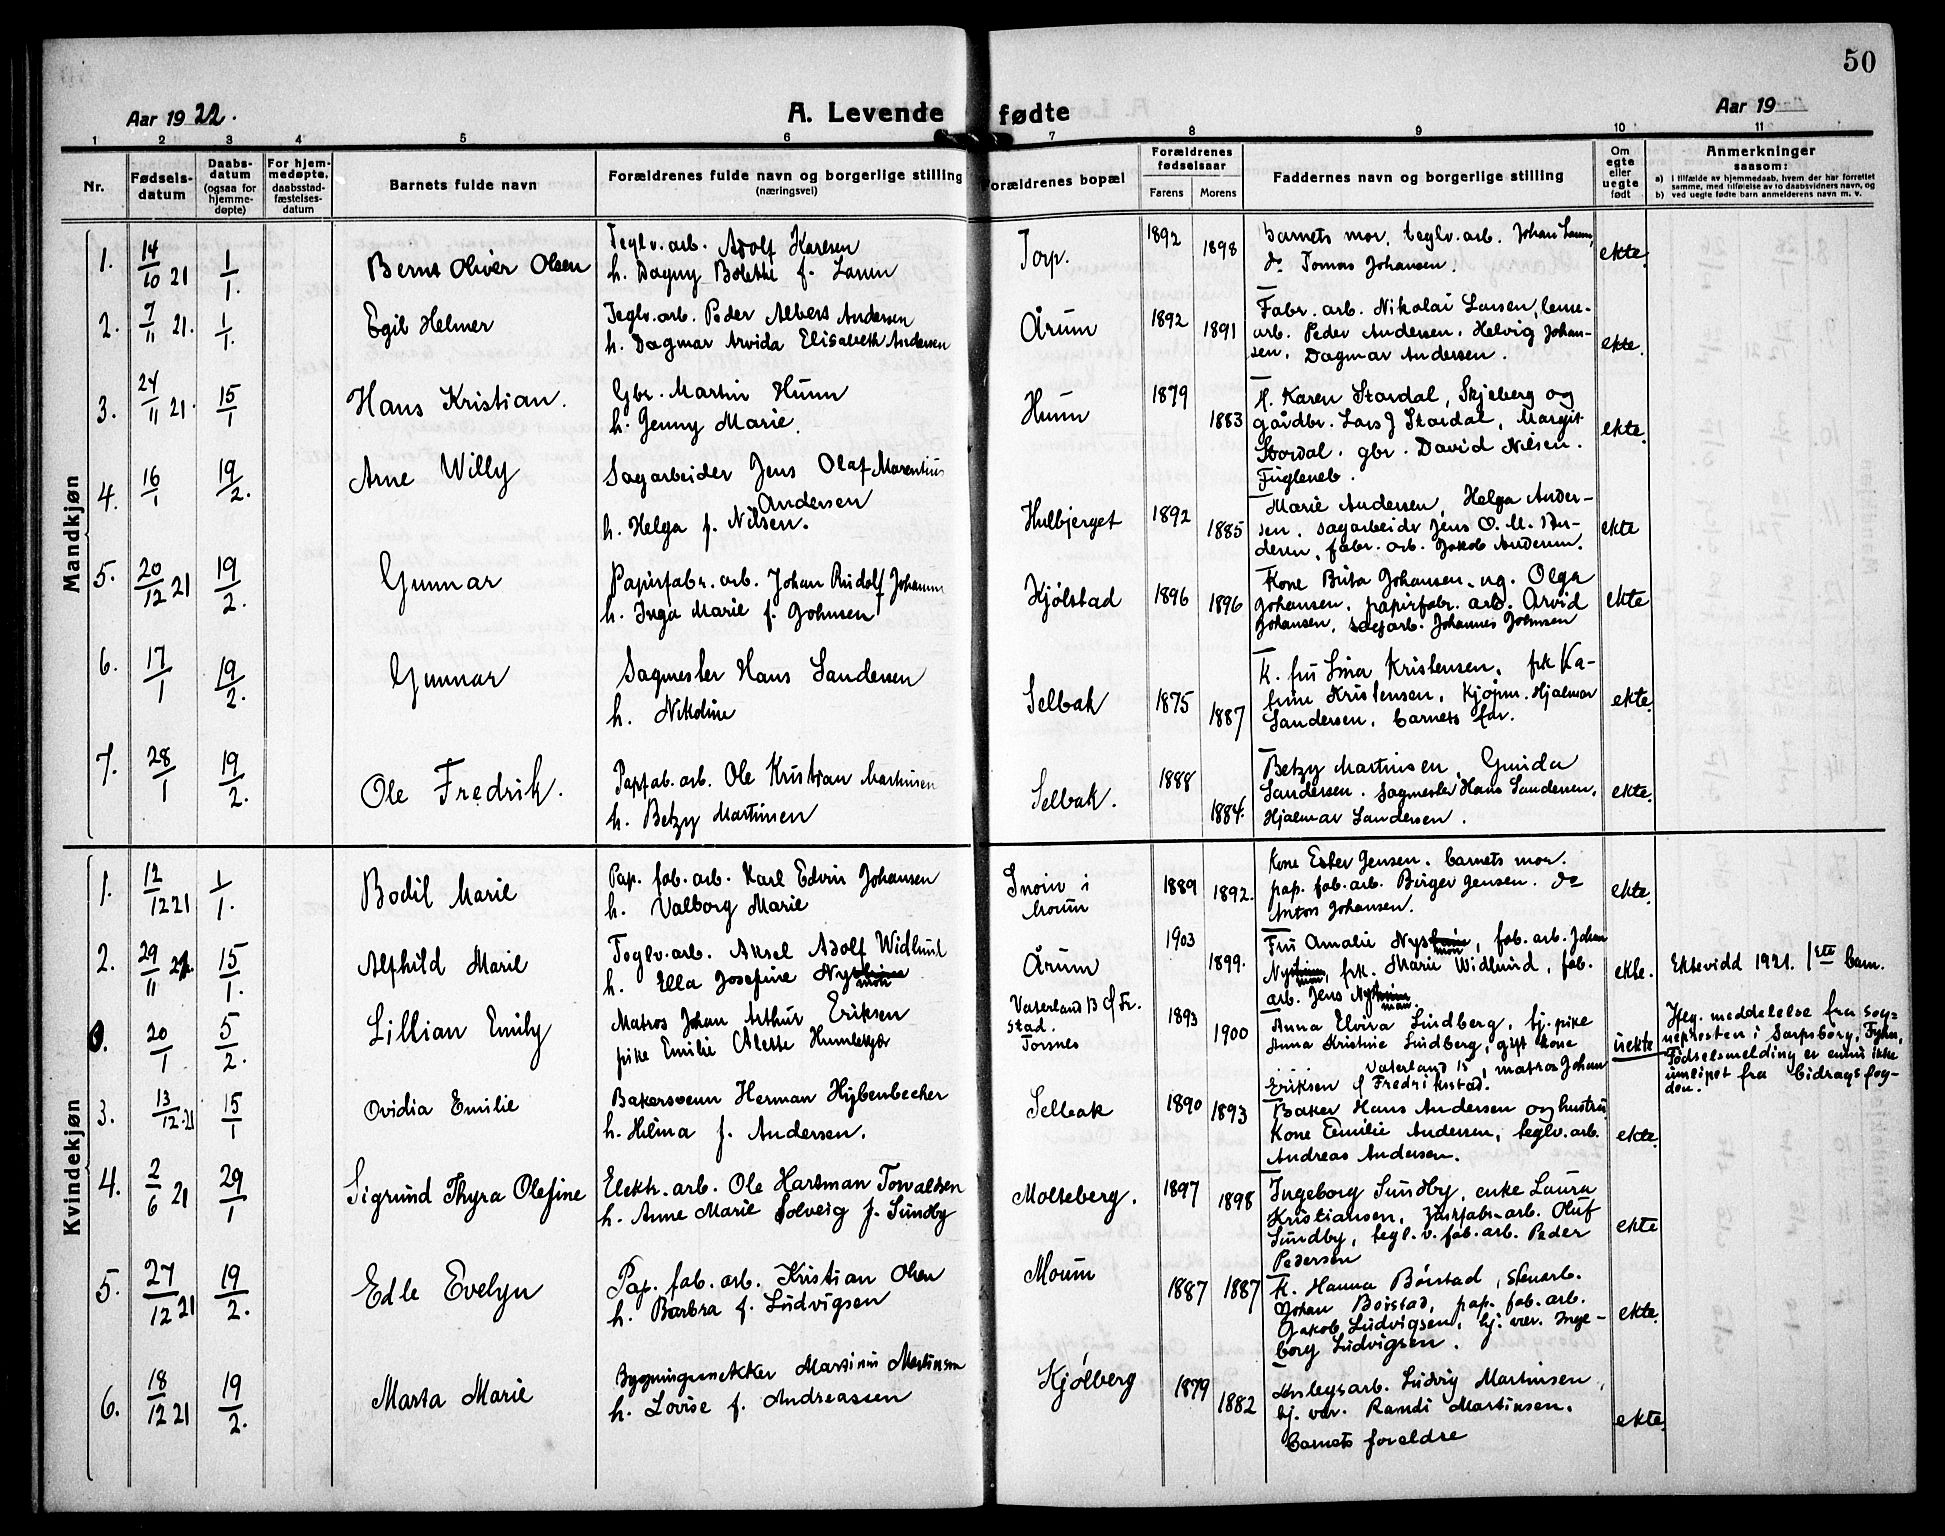 50
Aar 1922.
A. Levende fødte
Aar 19
1 2 3 4 5 6 7 8 9 10 11
Nr.
Fødsels-
datum
Daabs-
datum
(ogsaa for
hjemme-
døpte)
For hjem-
medøpte,
daabsstad-
fæstelses-
datum
Barnets fulde navn
Forældrenes fulde navn og borgerlige stilling
(næringsvei)
Forældrenes bopæl
Forældrenes
fødselsaar
Farens Morens
Faddernes navn og borgerlige stilling
Om
egte
eller
uegte
født
Anmerkninger
saasom:
a) i tilfælde av hjemmedaab, hvem der har forrettet
samme, med tilføielse av to daabsvidners navn, og
b) ved uegte fødte barn anmelderens navn m. v.
Mandkjøn
1. 14/10 21 1/1. Bernt Oliver Olsen
Teglv. arb. Adolf Karlsen
h. Dagny Bolette f. Larsen
Torp. 1892 1898
Barnets mor, teglv. arb. Johan Larsen,
do Tomas Johansen.
ekte.
2. 7/11 21. 1/1. Egil Helmer
Teglv. arb. Peder Albert Andersen
h. Dagmar Arvida Elisabeth Andersen
Årum 1892 1891
Fabr. arb. Nikolai Larsen,
arb. Peder Andersen. Helvig Johan-
sen, Dagmar Andersen.
ekte.
3. 24/11 21. 15/1 Hans Kristian.
Gbr. Martin Hunn
h. Genny Marie.
Hunn 1879 1883
K. Karen Stordal, Skjeberg og
gårdbr. Lars J Stordal, Margit
Stordal. gbr. David Nilsen.
Fugleneb.
ekte.
4. 16/1 19/2. Arne Willy
Sagarbeider Jens Olaf Marentius
Andersen
h. Helga f. Nilsen.
Hulbjerget 1892 1885
Marie Andersen, Helga Ander-
sen, sagarbeider Jens O. M. An-
dersen, fabr. arb. Jakob Andersen.
ekte
5. 20/12 21 19/2. Gunnar
Papirfabr. arb. Johan Rudolf Johansen
h. Inga Marie f. Johnsen
Kjølstad 1896 1896
Kone Brita Johansen, ug. Olga
Johansen, papirfabr. arb. Arvid
Johansen, sagarb. Johannes Johnsen
ekte
6. 17/1 19/2. Gunnar
Sagmester Hans Sandersen
h. Nikoline
Selbak 1875 1887
K. fru Lina Kristensen, frk Ka-
trine Kristensen, Kjøpm. Hjalmar
Sandersen, barnets far.
ekte.
7. 28/1 19/2. Ole Fredrik.
Papfab. arb. Ole Kristian Martinsen
h. Betzy Martinsen
Selbak. 1888 1884.
Betzy Martinsen, Gunda
Sandersen. Sagmester Hans Sandersen,
Hjalmar Sandersen.
ekte.
Kvindekjøn
1. 12/12 21 1/1. Bodil Marie
Pap. fab. arb. Karl Edvin Johansen
h. Valborg Marie
i
Moum 1889 1892.
Kone Ester Jensen. barnets mor.
pap. fab. arb. Birger Jensen. do
Anton Johansen.
ekte.
2. 29/11 21. 15/1. Alfhild Marie
Teglv. arb. Aksel Adolf Widlund
h. Ella Josefine Nystrøm
mon
Årum 1903 1899.
Fru Amalie Nystrøm, fab. arb. Johan
mon
Nystrøm, frk. Marie Widlund, fab.
mon
arb. Jens Nystrøm.
man
ekte. Ektevidd 1921. 1ste barn.
0. 20/1 5/2. Lillian Emily
Matros Johan Arthur Eriksen
pike Emilie Alette Humlekjær
Vaterland 13 Fr.
stad.
Torsnes 1893 1900
Anna Elvira Lindberg, tj. pike
Anna Kristine Lindberg, gift kone
Vaterland 15, matros Johan
Eriksen Fredrikstad.
uekte
Iflg. meddelelse fra sog-
neprosten i Sarpsborg,
Fødselsmelding er ennu ikke
innløpet fra bidragsfog-
den.
3. 13/12. 21 15/1 Ovidia Emilie
Bakersvenn Herman Hybenbecker
h. Hilma f. Andersen.
Selbak 1890 1893
Baker Hans Andersen og hustru
Kone Emilie Andersen, teglv. arb.
Andreas Andersen.
ekte.
4. 2/6 21 29/1 Sigrund Thyra Olefine
Elektr. arb. Ole Hartman Torvaldsen
h. Anne Marie Solveig f. Sundby
Molteberg. 1897 1898
Ingeborg Sundby, enke Laura
Kristiansen, arb. Oluf
Sundby, tegl. v. fab. arb. Peder
Pedersen
ekte
5. 27/12 21 19/2. Edle Evelyn
Pap. fab. arb. Kristian Olsen
h. Barbra f. Ludvigsen
Moum 1887 1887
K. Hanna Børstad, stenarb.
Johan Børstad, pap. fab. arb.
Jakob Ludvigsen, hj. vær. Inge-
borg Ludvigsen.
ekte.
6. 18/12 21 19/2. Marta Marie
Bygningssnekker Martinius Martinsen
h. Lovise f. Andreassen
Kjølberg 1879 1882
Anlegsarb. Ludvig Martinsen,
hj. vær. Randi Martinsen.
barnets foreldre
ekte.